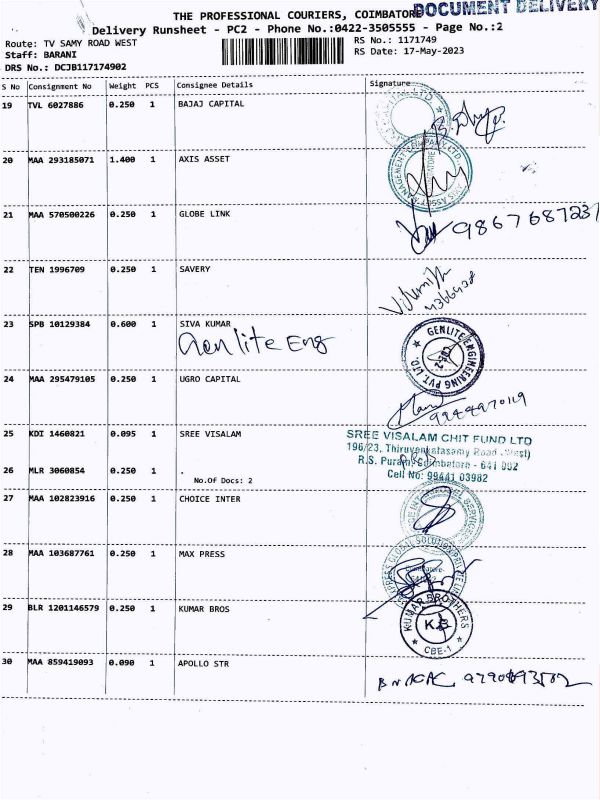 THE PROFESSIONAL COURIERS, COIMBATORE
DOCUMENT DELIVERY
Delivery Runsheet - PC2 - Phone No.:0422-3505555 - Page No.:2
Route: TV SAMY ROAD WEST
RS No.: 1171749
Staff: BARANI
RS Date: 17-May-2023
DRS No.: DCJB117174902
S No Consignment No Weight PCS Consignee Details Signature
19 TVL 6027886 0.250 1 BAJAJ CAPITAL
20 MAA 293185071 1.400 1 AXIS ASSET
21 MAA 570500226 0.250 1 GLOBE LINK
9867687237
22 TEN 1996709 0.250 1 SAVERY
23 SPB 10129384 0.600 1 SIVA KUMAR
Genlite Eng
GENLITE ENGINEERING PVT. LTD.
24 MAA 295479105 0.250 1 UGRO CAPITAL
9944970119
25 KDI 1460821 0.095 1 SREE VISALAM
SREE VISALAM CHIT FUND LTD
196/23, Thiruvenkatasamy Road (West)
R.S. Puram, Coimbatore - 641 002
Cell No: 99441 03982
26 MLR 3060854 0.250 1 .
No.Of Docs: 2
27 MAA 102823916 0.250 1 CHOICE INTER
28 MAA 103687761 0.250 1 MAX PRESS
29 BLR 1201146579 0.250 1 KUMAR BROS
KUMAR BROTHERS
K.B
CBE-1
30 MAA 859419093 0.090 1 APOLLO STR